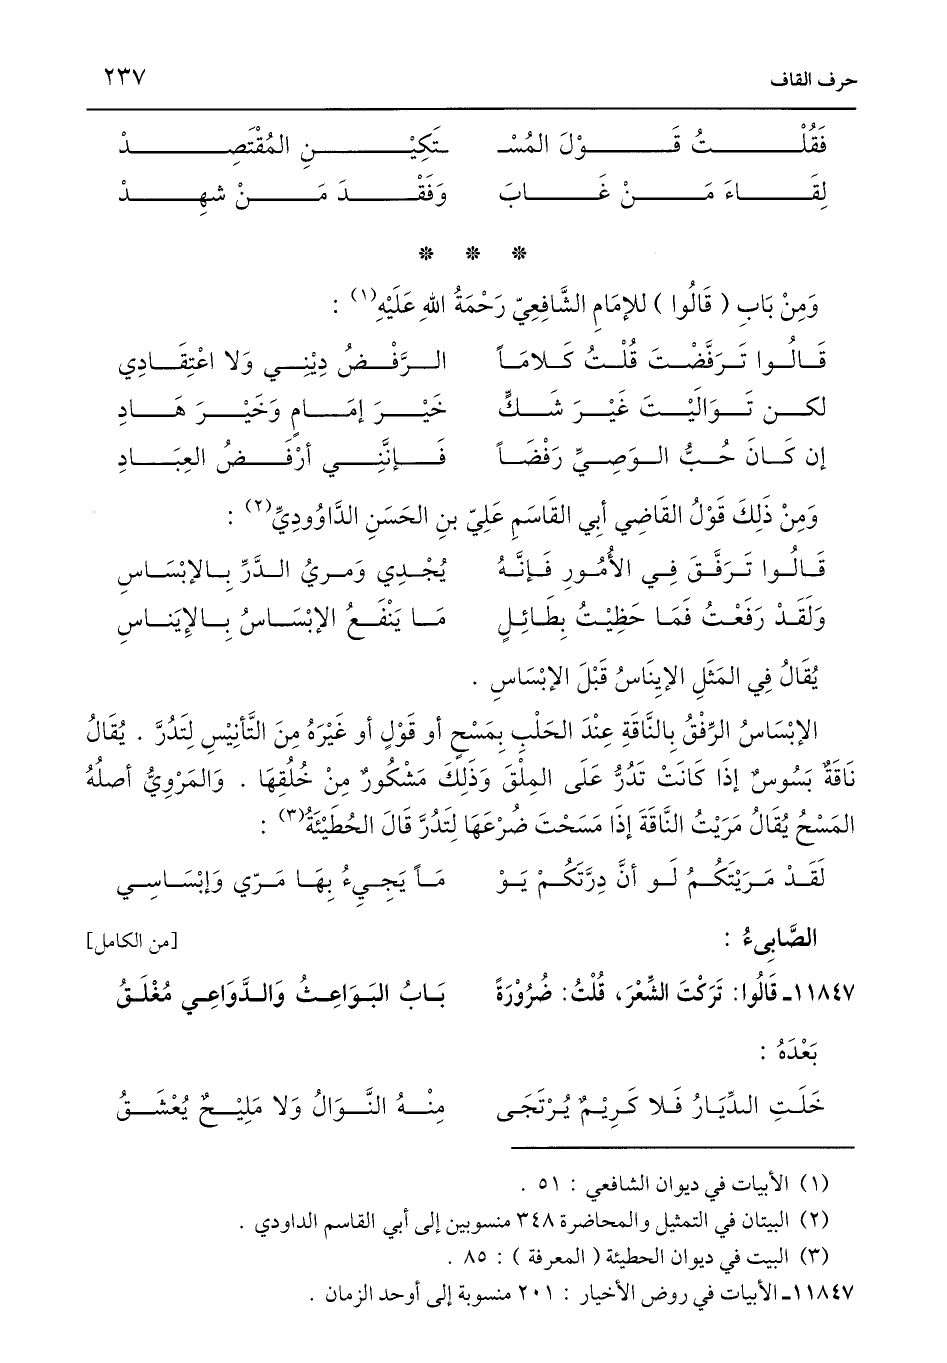 حرف القاف ٢٣٧
فَقُلْتُ قَوْلَ المُسْـ ـتَكِيْنِ المُقْتَصِدْ
لِقَاءَ مَنْ غَابَ وَفَقْدَ مَنْ شهِدْ
* * *
وَمِنْ بَابِ ( قَالُوا ) للإمَامِ الشَّافِعِيّ رَحْمَةُ اللهِ عَلَيْهِ(١) :
قَالُوا تَرَفَّضْتَ قُلْتُ كَلامَاً الرَّفْضُ دِيْنِي وَلا اعْتِقَادِي
لكن تَوَالَيْتَ غَيْرَ شَكٍّ خَيْرَ إمَامٍ وَخَيْرَ هَادِ
إن كَانَ حُبُّ الوَصِيِّ رَفْضَاً فَإنَّنِي أرْفَضُ العِبَادِ
وَمِنْ ذَلِكَ قَوْلُ القَاضِي أبي القَاسَمِ عَلِيّ بنِ الحَسَنِ الدَّاوُودِيِّ(٢) :
قَالُوا تَرَفَّقَ فِي الأُمُورِ فَإنَّهُ يُجْدِي وَمريُ الدَّرِّ بِالإبْسَاسِ
وَلَقَدْ رَفَعْتُ فَمَا حَظِيْتُ بِطَائِلٍ مَا يَنْفَعُ الإبْسَاسُ بِالإِيَناسِ
يُقَالُ فِي المَثَلِ الإينَاسُ قَبْلَ الإبْسَاسِ .
الإبْسَاسُ الرِّفْقُ بِالنَّاقَةِ عِنْدَ الحَلْبِ بِمَسْحٍ أو قَوْلٍ أو غَيْرَهُ مِنَ التَّأنِيْسِ لِتَدُرَّ . يُقَالُ
نَاقَةٌ بَسُوسٌ إذَا كَانَتْ تَدُرُّ عَلَى المِلْقِ وَذَلِكَ مَشْكُورٌ مِنْ خُلُقِهَا . وَالمَرْوِيُّ أصلُهُ
المَسْحُ يُقَالُ مَرَيْتُ النَّاقَةَ إذَا مَسَحْتَ ضُرْعَهَا لِتَدُرَّ قَالَ الحُطَيْئَةُ(٣) :
لَقَدْ مَرَيْتكُمُ لَو أنَّ دِرَّتَكُمْ يَوْ مَاً يَجِيءُ بِهَا مَرّي وَإبْسَاسِي
الصَّابِىءُ : [من الكامل]
١١٨٤٧ـ قَالُوا: تَرَكْتَ الشِّعْرَ، قُلْتُ: ضُرُوْرَةً بَابُ البَوَاعِثُ وَالدَّوَاعِي مُغْلَقُ
بَعْدَهُ :
خَلَتِ الدِّيَارُ فَلا كَرِيْمٌ يُرْتَجَى مِنْهُ النَّوَالُ وَلا مَلِيْحٌ يُعْشَقُ
(١) الأبيات في ديوان الشافعي : ٥١ .
(٢) البيتان في التمثيل والمحاضرة ٣٤٨ منسوبين إلى أبي القاسم الداودي .
(٣) البيت في ديوان الحطيئة ( المعرفة ) : ٨٥ .
١١٨٤٧ـ الأبيات في روض الأخيار : ٢٠١ منسوبة إلى أوحد الزمان .